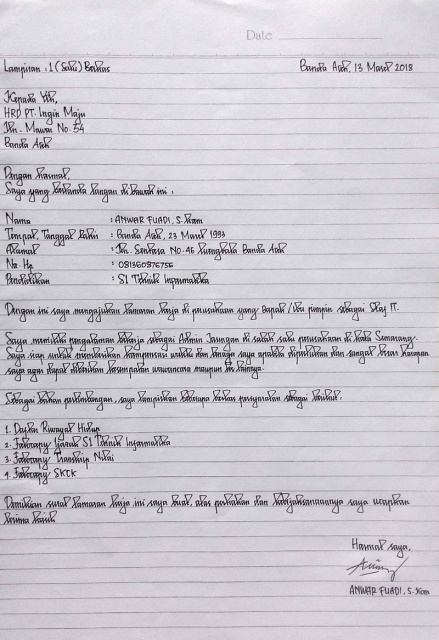 Date
Lampiran : 1 (Satu) Berkas
Banda Aceh, 13 Maret 2018
Kepada Yth,
HRD PT. Ingin Maju
Jln. Mawar No. 54
Banda Aceh
Dengan Hormat,
Saya yang bertanda tangan di bawah ini :
Nama : ANWAR FUADI, S.Kom
Tempat, Tanggal Lahir : Banda Aceh, 23 Maret 1993
Alamat : Jln. Sentosa No.46 Banda Aceh
No Hp : 081360876756
Pendidikan : S1 Teknik Informatika
Dengan ini saya mengajukan lamaran kerja di perusahaan yang Bapak / Ibu pimpin sebagai Staf IT.
Saya memiliki pengalaman bekerja sebagai Admin Jaringan di salah satu perusahaan di kota Semarang.
Saya siap untuk memberikan kompensasi waktu dan tenaga saya apabila diperlukan dan sangat besar harapan
saya agar dapat diberikan kesempatan wawancara maupun tes lainnya.
Sebagai bahan pertimbangan, saya lampirkan beberapa berkas persyaratan sebagai berikut.
1. Daftar Riwayat Hidup
2. Fotocopy Ijazah S1 Teknik Informatika
3. Fotocopy Transkip Nilai
4. Fotocopy SKCK
Demikian surat lamaran kerja ini saya buat, atas perhatian dan kebijaksanaannya saya ucapkan
terima kasih
Hormat saya,
ANWAR FUADI, S.Kom